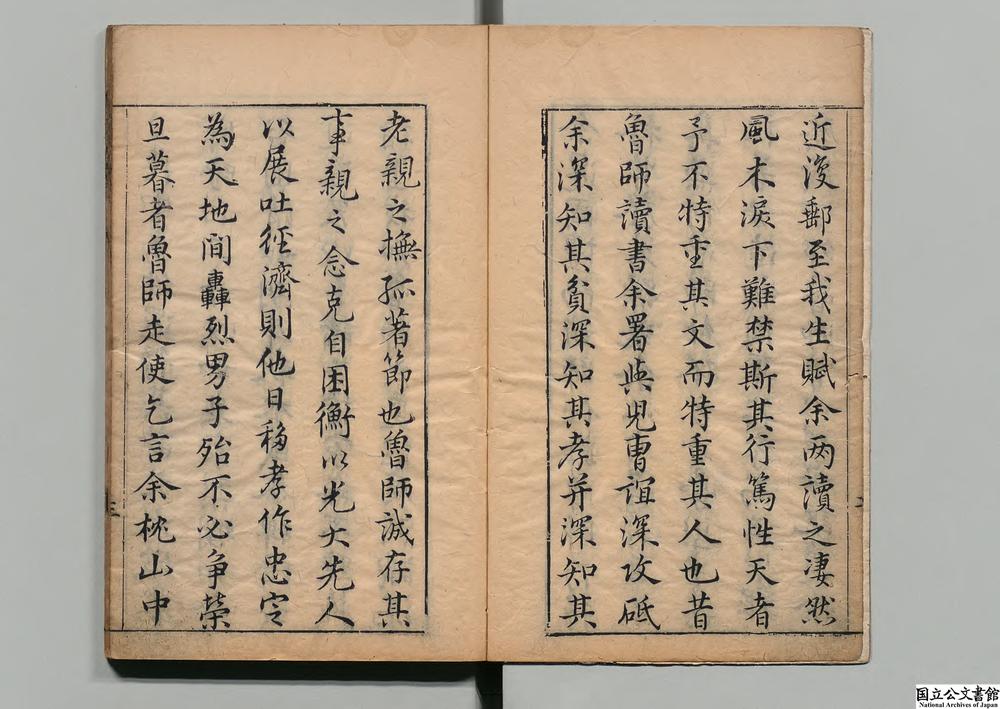 近復郵至我生賦余两讀之凄然
風木淚下難禁斯其行篤性天者
予不特重其文而特重其人也昔
魯師讀書余署與兒曹誼深攻砥
余深知其貧深知其孝并深知其
老親之撫孤著節也魯師誠存其
事親之念克自困衡以光大先人
以展吐徑濟則他日移孝作忠定
為天地間轟烈男子殆不必爭榮
旦暮者魯師走使乞言余枕山中
二
三
国立公文書館
National Archives of Japan